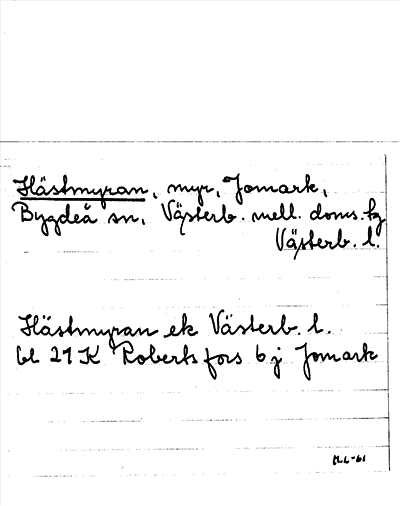 Hästmyran, myr, Jomark,
Bygdeå sn, Västerb. mell. doms.hg
Västerb. l.
Hästmyran ek Västerb. l.
bl 21 K Robertsfors 6 j Jomark
M.L-61